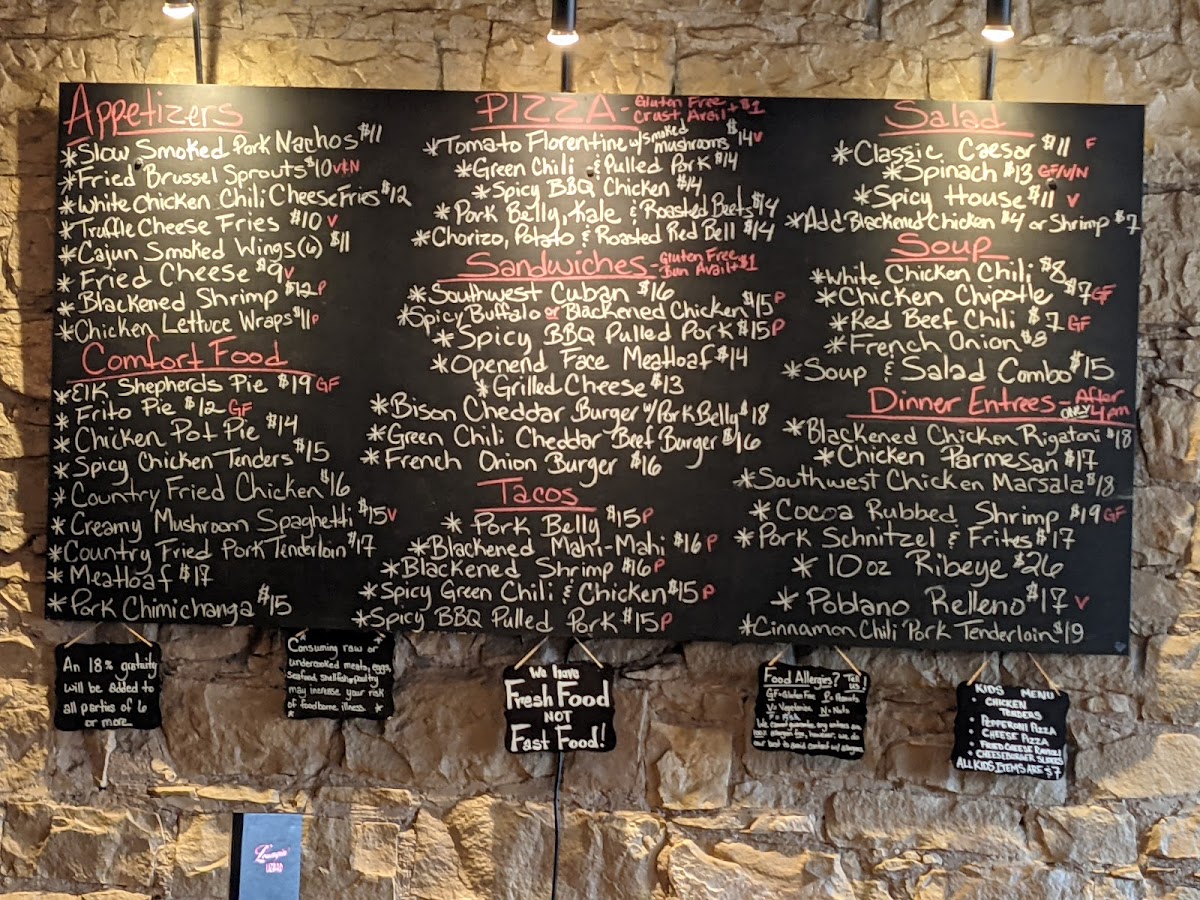 Appetizers
*Slow Smoked Pork Nachos $11
*Fried Brussel Sprouts $10 V&N
*White Chicken Chili Cheese Fries $12
*Truffle Cheese Fries $10 V
*Cajun Smoked Wings (6) $11
*Fried Cheese $9 V
*Blackened Shrimp $12 P
*Chicken Lettuce Wraps $11 P
Comfort Food
*Elk Shepherds Pie $19 GF
*Frito Pie $12 GF
*Chicken Pot Pie $14
*Spicy Chicken Tenders $15
*Country Fried Chicken $16
*Creamy Mushroom Spaghetti $15 V
*Country Fried Pork Tenderloin $17
*Meatloaf $17
*Pork Chimichanga $15
PIZZA - Gluten Free
Crust Avail + $1
*Tomato Florentine w/ smoked mushrooms $14 V
*Green Chili & Pulled Pork $14
*Spicy BBQ Chicken $14
*Pork Belly, Kale & Roasted Beets $14
*Chorizo, Potato & Roasted Red Bell $14
Sandwiches - Gluten Free
Bun Avail + $1
*Southwest Cuban $16
*Spicy Buffalo or Blackened Chicken $15 P
*Spicy BBQ Pulled Pork $15 P
*Openend Face Meatloaf $14
*Grilled Cheese $13
*Bison Cheddar Burger w/ Pork Belly $18
*Green Chili Cheddar Beef Burger $16
*French Onion Burger $16
Tacos
*Pork Belly $15 P
*Blackened Mahi-Mahi $16 P
*Blackened Shrimp $16 P
*Spicy Green Chili & Chicken $15 P
*Spicy BBQ Pulled Pork $15 P
Salad
*Classic Caesar $11 F
*Spinach $13 GF/V/N
*Spicy House $11 V
*Add Blackened Chicken $4 or Shrimp $7
Soup
*White Chicken Chili $8
*Chicken Chipotle $7 GF
*Red Beef Chili $7 GF
*French Onion $8
*Soup & Salad Combo $15
Dinner Entrees - After
ONLY 4pm
*Blackened Chicken Rigatoni $18
*Chicken Parmesan $17
*Southwest Chicken Marsala $18
*Cocoa Rubbed Shrimp $19 GF
*Pork Schnitzel & Frites $17
*10 oz Ribeye $26
*Poblano Relleno $17 V
*Cinnamon Chili Pork Tenderloin $19
An 18% gratuity
will be added to
all parties of 6
or more
Consuming raw or
undercooked meats, eggs,
seafood, shellfish, poultry
may increase your risk
of foodborne illness.
We have
Fresh Food
NOT
Fast Food!
Food Allergies? Tell us
GF=Gluten Free P= Peanuts
V= Vegetarian N= Nuts
F= Fish
We cannot guarantee any entrees are
100% allergen free, however, we do
our best to avoid contact w/ allergens
KIDS MENU
CHICKEN
TENDERS
• PEPPERONI PIZZA
• CHEESE PIZZA
• FRIED CHEESE RAVIOLI
• CHEESEBURGER SLIDERS
ALL KIDS ITEMS ARE $7
Loungin'
LIZARD